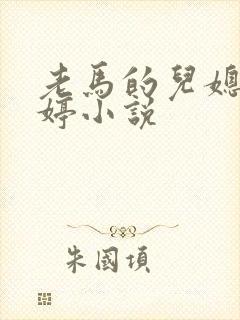 老馬的兒媳
婷小說
朱國項